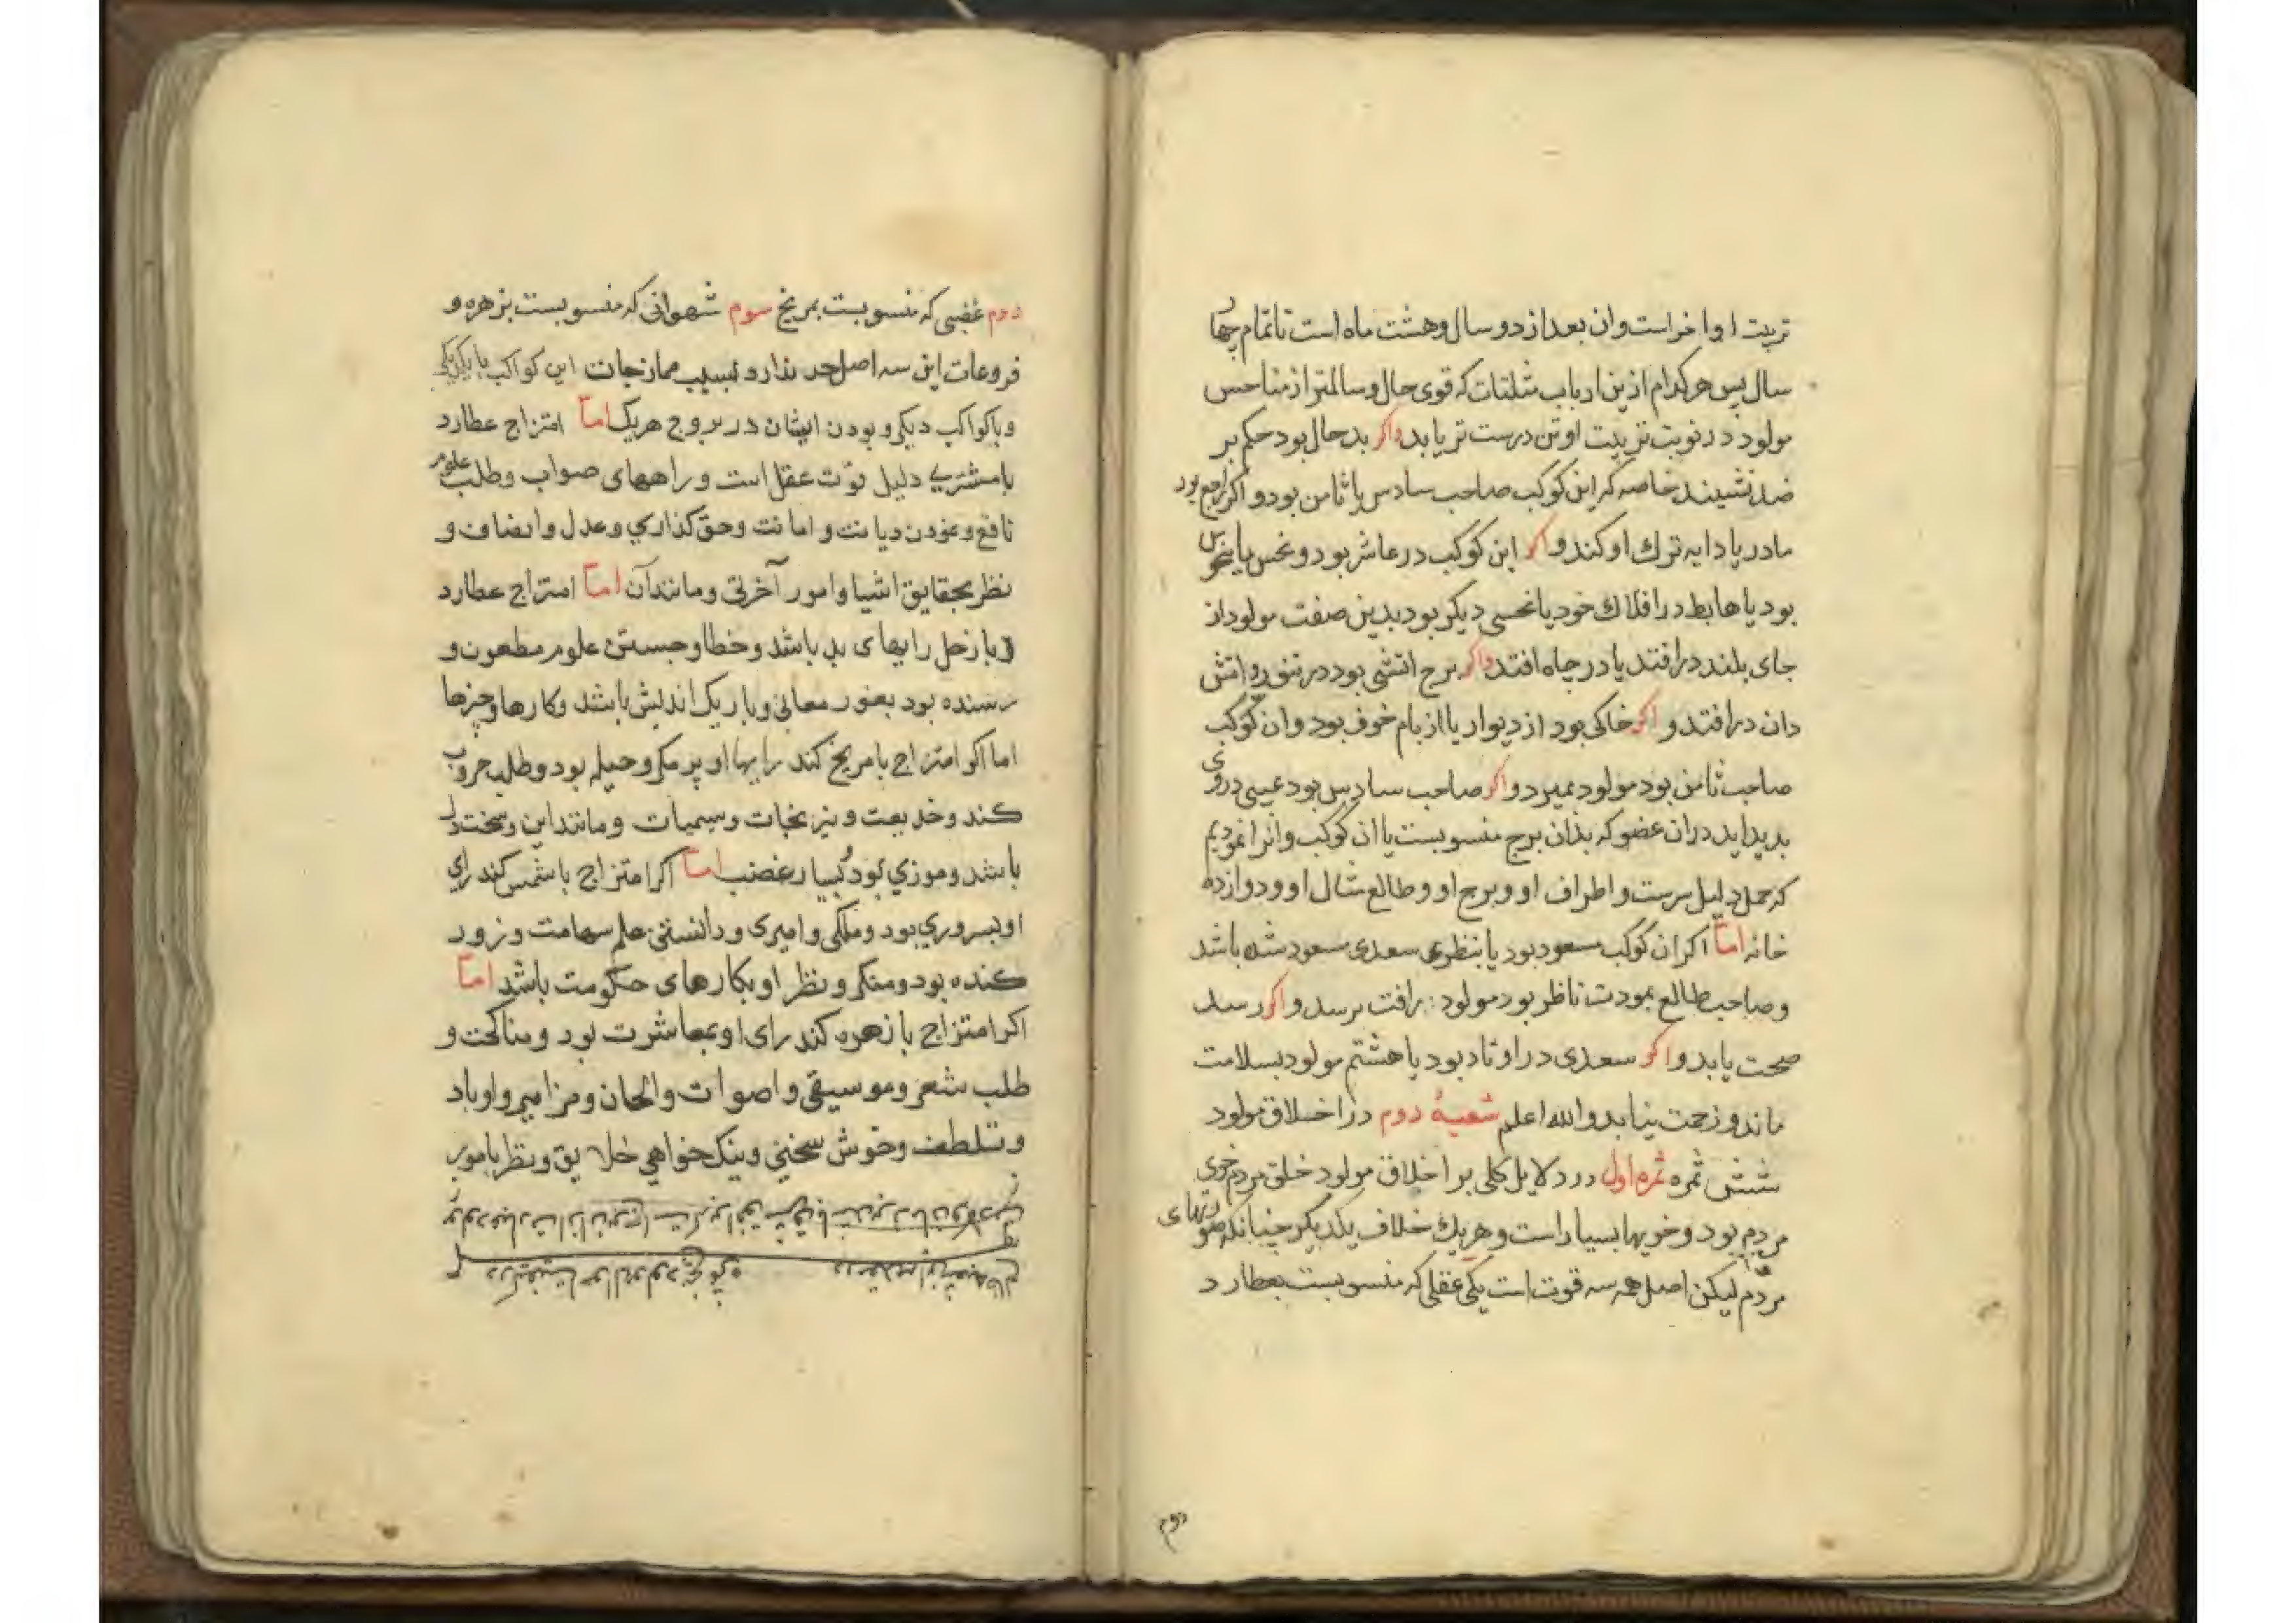 تربیت او اخراست وان بعد از دو سال و هشت ماه است تا تمام چهار
سال پس هرکدام ازین ارباب مثلثات که قوی حال و سالمتر از مناحس
مولود در نوبت تربیت او تن درست تر یابد واکر بد حال بود حکم بر
ضد نشیند خاصه که این کوکب صاحب سادس یا ثامن بود و اکر راجع بود
مادر یا دایه ترك او کند و اکر این کوکب در عاشر بود و نحس یا منحوس
بود یا هابط در افلاك خود یا نحسی دیکر بود بدین صفت مولود از
جای بلند درافتد یا در چاه افتد واکر برج اتشی بود در تنور و اتش
دان درافتد و اکر خاکی بود از دیوار یا از بام خوف بود و ان کوکب
صاحب ثامن بود مولود بمیرد و اکر صاحب سادس بود عیبی در وی
بدید اید دران عضو که بذان برج منسوبست یا ان کوکب وانرا نمودیم
که حمل دلیل سرست و اطراف او و برج او و طالع مثال او و دوازده
خانه اما اکر ان کوکب مسعود بود یا بنظری سعدی مسعود شده باشد
و صاحب طالع بمودت ناظر بود مولود برافت برسد و اکر رسد
صحت یابد و اکر سعدی در اوتاد بود یا هشتم مولود بسلامت
ماند و زحمت نیابد والله اعلم شعبهٔ دوم در اخلاق مولود
شش ثمره ثمره اول در دلایل کلی بر اخلاق مولود خلق مردم خوی
مردم بود و خویها بسیار است و هریك خلاف یکدیکر چنانکه صورتهای
مردم لیکن اصل همه سه قوت است یکی عقلی که منسوبست بعطارد
دوم
دوم غضبی که منسوبست بمریخ سوم شهوانی که منسوبست بزهره و
فروعات این سه اصل حد ندارد بسبب ممازجات این کواکب با یکدیکر
و با کواکب دیکر و بودن ایشان در بروج هریك اما امتزاج عطارد
با مشتری دلیل قوت عقل است و راههای صواب و طلب علوم
نافع و نمودن دیانت و امانت و حق کذاری و عدل و انصاف و
نظر بحقایق اشیا و امور آخرتی و مانند آن اما امتزاج عطارد
با زحل رایهای بد باشد و خطا و جستن علوم مطعون و
رسنده بود بغور معانی و باریك اندیش باشد و کارها و چیزها
اما اکر امتزاج با مریخ کند رایها او پر مکر و حیله بود و طلب حروب
کند و خدیعت و نیرنجات و سیمیات و مانند این و سخت دل
باشد و موزی بود و بسیار غضب اما اکر امتزاج با شمس کند رای
او بسروری بود و ملکی و امیری و دانستن علم سهامت و زود
کننده بود و متکبر و نظر او بکارهای حکومت باشد اما
اکر امتزاج با زهره کند رای او بمعاشرت بود و مناکحت و
طلب شعر و موسیقی و اصوات و الحان و مزامیر و اوباد
و تلطف و خوش سخنی و نیك خواهی خلایق و نظر بامور